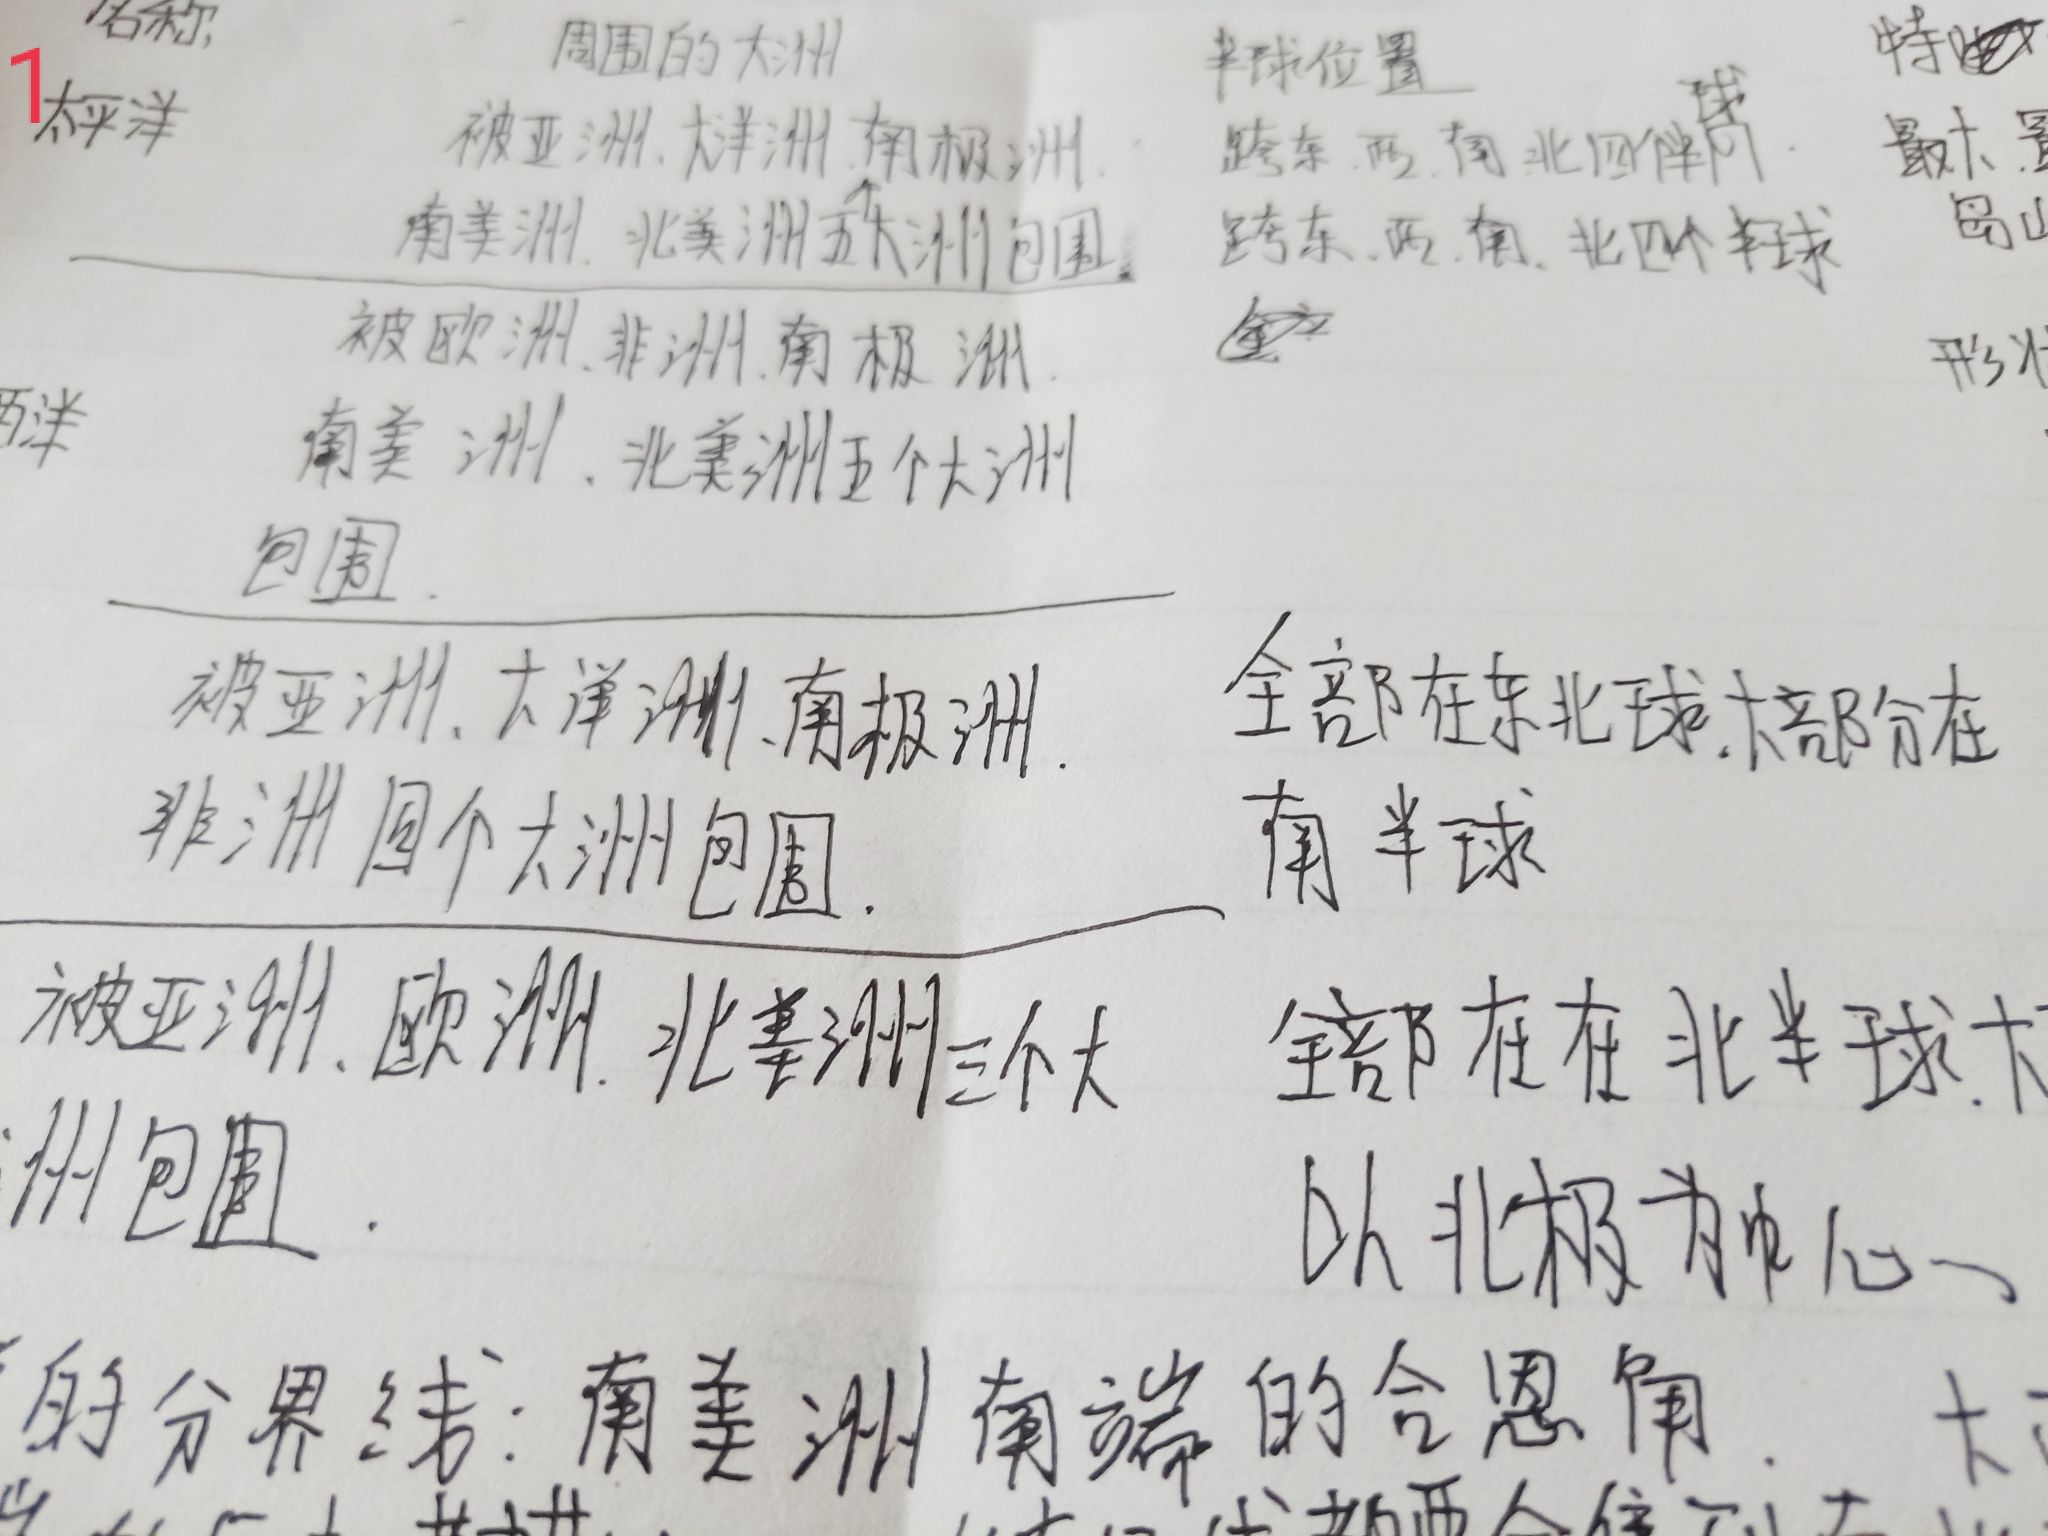 1
名称 周围的大洲 半球位置 特
太平洋 被亚洲、大洋洲、南极洲、 跨东、西、南、北四个半球 最大、最
南美洲、北美洲五大洲包围。 跨东、西、南、北四个半球 岛
被欧洲、非洲、南极洲、 形状
西洋 南美洲、北美洲五个大洲
包围。
被亚洲、大洋洲、南极洲、 全部在东北球、大部分在
非洲四个大洲包围. 南半球
被亚洲、欧洲、北美洲三个大 全部在在北半球、大
洲包围. 以北极为中心、
的分界线:南美洲南端的合恩角. 大